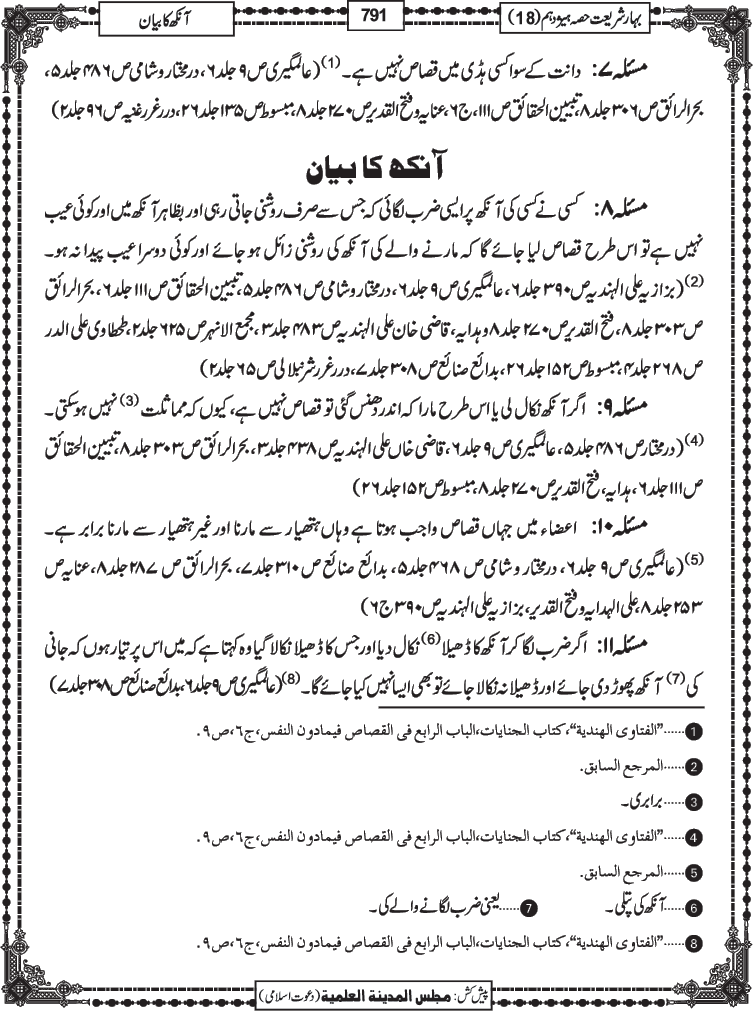 بہار شریعت حصہ ہیژدہم (18)
791
آنکھ کا بیان
مسئلہ ۷: دانت کے سوا کسی ہڈی میں قصاص نہیں ہے۔(1) (عالمگیری ص ۹ جلد ۶، درمختار و شامی ص ۴۸۶ جلد ۵،
بحرالرائق ص ۳۰۶ جلد ۸، تبیین الحقائق ص ۱۱۱، ج ۶، عنایہ و فتح القدیر ص ۲۷۰ جلد ۸، مبسوط ص ۱۳۵ جلد ۲۶، درر غرر غنیہ ص ۹۶ جلد ۲)
آنکھ کا بیان
مسئلہ ۸: کسی نے کسی کی آنکھ پر ایسی ضرب لگائی کہ جس سے صرف روشنی جاتی رہی اور بظاہر آنکھ میں اور کوئی عیب
نہیں ہے تو اس طرح قصاص لیا جائے گا کہ مارنے والے کی آنکھ کی روشنی زائل ہو جائے اور کوئی دوسرا عیب پیدا نہ ہو۔
(2) (بزازیہ علی الہندیہ ص ۳۹۰ جلد ۶، عالمگیری ص ۹ جلد ۶، درمختار و شامی ص ۴۸۶ جلد ۵، تبیین الحقائق ص ۱۱۱ جلد ۶، بحرالرائق
ص ۳۰۳ جلد ۸، فتح القدیر ص ۲۷۰ جلد ۸ و ہدایہ، قاضی خان علی الہندیہ ص ۴۸۳ جلد ۳، مجمع الانہر ص ۶۲۵ جلد ۲، طحطاوی علی الدر
ص ۲۶۸ جلد ۴، مبسوط ص ۱۵۲ جلد ۲۶، بدائع صنائع ص ۳۰۸ جلد ۷، درر غرر شرنبلالی ص ۶۵ جلد ۲)
مسئلہ ۹: اگر آنکھ نکال لی یا اس طرح مارا کہ اندر دھنس گئی تو قصاص نہیں ہے، کیوں کہ مماثلت(3) نہیں ہوسکتی۔
(4) (درمختار ص ۴۸۶ جلد ۵، عالمگیری ص ۹ جلد ۶، قاضی خاں علی الہندیہ ص ۴۳۸ جلد ۳، بحرالرائق ص ۳۰۳ جلد ۸، تبیین الحقائق
ص ۱۱۱ جلد ۶، ہدایہ، فتح القدیر ص ۲۷۰ جلد ۸، مبسوط ص ۱۵۲ جلد ۲۶)
مسئلہ ۱۰: اعضاء میں جہاں قصاص واجب ہوتا ہے وہاں ہتھیار سے مارنا اور غیر ہتھیار سے مارنا برابر ہے۔
(5) (عالمگیری ص ۹ جلد ۶، درمختار و شامی ص ۴۶۸ جلد ۵، بدائع صنائع ص ۳۱۰ جلد ۷، بحرالرائق ص ۲۸۷ جلد ۸، عنایہ ص
۲۵۳ جلد ۸، علی الہدایہ و فتح القدیر، بزازیہ علی الہندیہ ص ۳۹۰ ج ۶)
مسئلہ ۱۱: اگر ضرب لگا کر آنکھ کا ڈھیلا(6) نکال دیا اور جس کا ڈھیلا نکالا گیا وہ کہتا ہے کہ میں اس پر تیار ہوں کہ جانی
کی(7) آنکھ پھوڑ دی جائے اور ڈھیلا نہ نکالا جائے تو بھی ایسا نہیں کیا جائے گا۔(8) (عالمگیری ص ۹ جلد ۶، بدائع صنائع ص ۳۰۸ جلد ۷)
1......"الفتاوی الهندية"، کتاب الجنایات، الباب الرابع فی القصاص فیمادون النفس، ج٦، ص٩.
2......المرجع السابق.
3......برابری۔
4......"الفتاوی الهندية"، کتاب الجنایات، الباب الرابع فی القصاص فیمادون النفس، ج٦، ص٩.
5......المرجع السابق.
6......آنکھ کی پتلی۔ 7......یعنی ضرب لگانے والے کی۔
8......"الفتاوی الهندية"، کتاب الجنایات، الباب الرابع فی القصاص فیمادون النفس، ج٦، ص٩.
پیش کش: مجلس المدینة العلمیة (دعوت اسلامی)